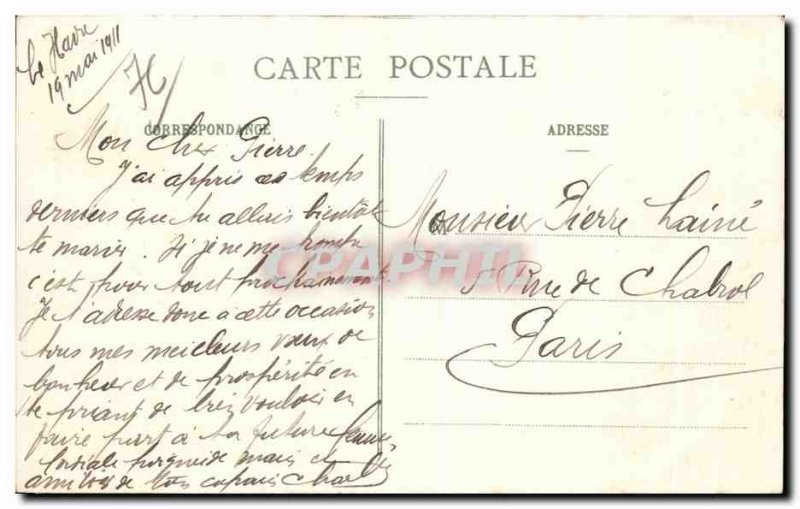 Le Havre
19 mai 1911
76
CARTE POSTALE
CORRESPONDANCE
ADRESSE
Mon cher Pierre.
J'ai appris ces temps
derniers que tu allais bientôt
te marier. Si je ne me trompe
c'est pour tout prochainement.
Je t'adresse donc à cette occasion
tous mes meilleurs vœux de
bonheur et de prospérité en
te priant de bien vouloir en
faire part à ta future femme
Cordiale poignée de main et
amitiés de ton copain Charles
Monsieur Pierre Lainé
5 Rue de Chabrol
Paris
CPAPHIL